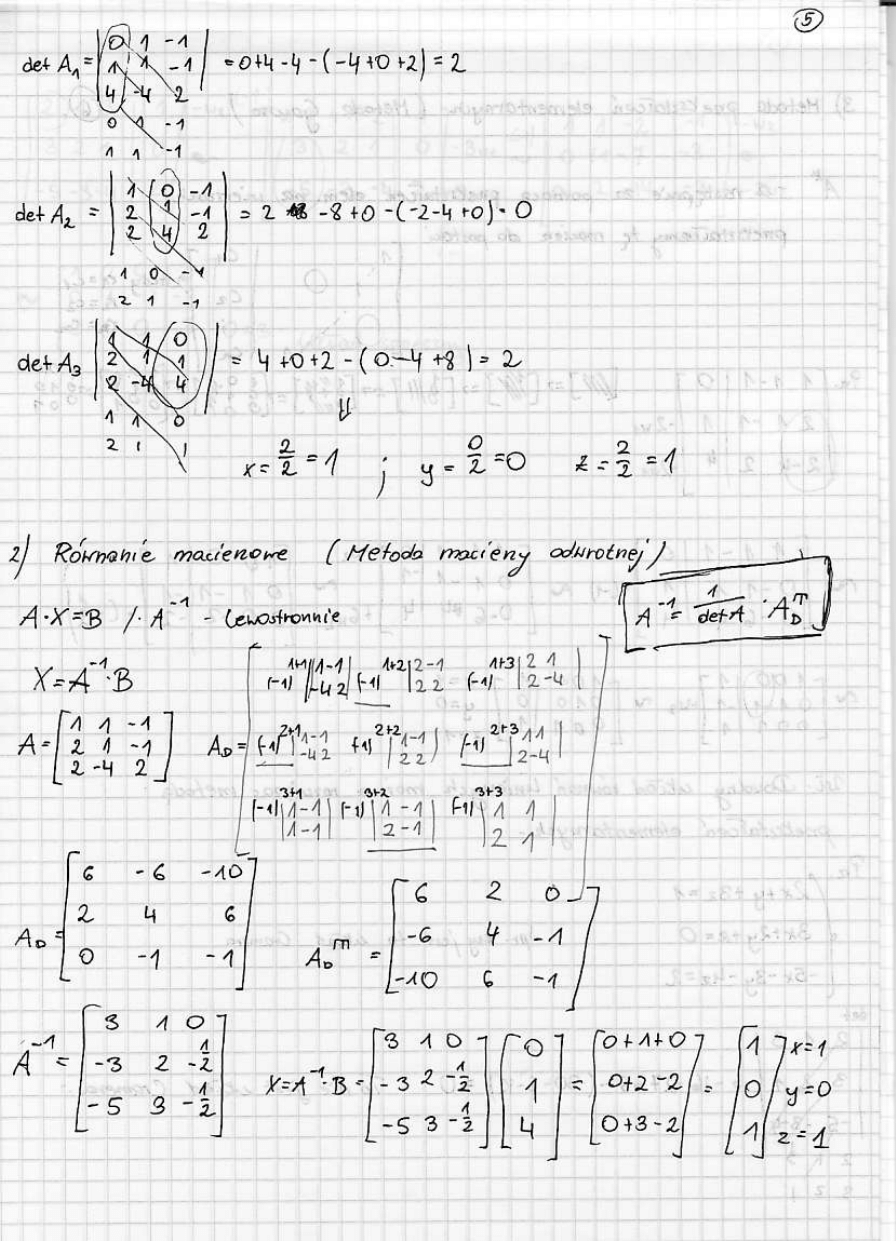 5
det A₁ = |0 1 -1| = 0+4-4-(-4+0+2) = 2
|1 1 -1|
|4 -4 2|
0 1 -1
1 1 -1
det A₂ = |1 0 -1| = 2 -8+0-(-2-4+0) = 0
|2 1 -1|
|2 4 2|
1 0 -1
2 1 -1
det A₃ |1 1 0| = 4+0+2-(0-4+8) = 2
|2 1 1|
|2 -4 4|
1 1 0
2 1 1
⇓
x = 2/2 = 1 ; y = 0/2 = 0 z = 2/2 = 1
2) Równanie macierzowe (Metoda macierzy odwrotnej)
A·X=B /·A⁻¹ - lewostronnie
A⁻¹ = 1/det A · A_D^T
X=A⁻¹·B
A = [1 1 -1; 2 1 -1; 2 -4 2]
A_D = [(-1)^1+1 |1 -1; -4 2| (-1)^1+2 |2 -1; 2 2| (-1)^1+3 |2 1; 2 -4|
(-1)^2+1 |1 -1; -4 2| (-1)^2+2 |1 -1; 2 2| (-1)^2+3 |1 1; 2 -4|
(-1)^3+1 |1 -1; 1 -1| (-1)^3+2 |1 -1; 2 -1| (-1)^3+3 |1 1; 2 1|]
A_D = [6 -6 -10; 2 4 6; 0 -1 -1]
A_D^T = [6 2 0; -6 4 -1; -10 6 -1]
A⁻¹ = [3 1 0; -3 2 -1/2; -5 3 -1/2]
X=A⁻¹·B = [3 1 0; -3 2 -1/2; -5 3 -1/2] [0; 1; 4] = [0+1+0; 0+2-2; 0+3-2] = [1; 0; 1] x=1 y=0 z=1